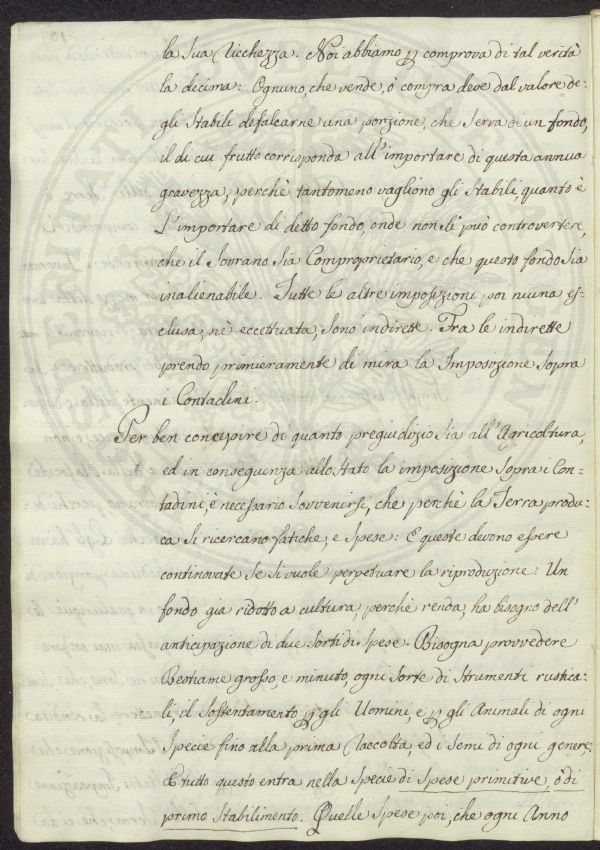 la Sua Ricchezza. Noi abbiamo ꝑ comprova di tal verità
la decima: Ognuno, che vende, ò compra deve dal valore de-
gli Stabili defalcarne una porzione, che Serva di un fondo,
il di cui frutto corrisponda all'importare di questa annua
gravezza, perchè tantomeno vagliono gli Stabili, quanto è
L'importare di detto fondo, onde non Si può controvertere,
che il Sovrano Sia Comproprietario, e che questo fondo Sia
inalienabile. Tutte le altre imposizioni poi niuna es-
clusa, nè eccettuata, Sono indirette. Fra le indirette
prendo primieramente di mira la Imposizione Sopra
i Contadini.
Per ben concepire di quanto pregiudizio Sia all'Agricoltura,
ed in conseguenza allo Stato la imposizione Sopra i Con-
tadini, è necessario Sovvenirsi, che perchè la Terra produ-
ca Si ricercano fatiche, e Spese: E queste devono essere
continovate Se Si vuole perpetuare la riproduzione. Un
fondo già ridotto a cultura, perchè renda, ha bisogno dell'
anticipazione di due Sorti di Spese. Bisogna provvedere
Bestiame grosso, e minuto, ogni Sorte di Strumenti rustica-
li, il Sostentamento ꝑ gli Uomini, e ꝑ gli Animali di ogni
Specie fino alla prima Raccolta, ed i Semi di ogni genere,
E tutto questo entra nella Specie di Spese primitive, ò di
primo Stabilimento. Quelle Spese poi, che ogni Anno